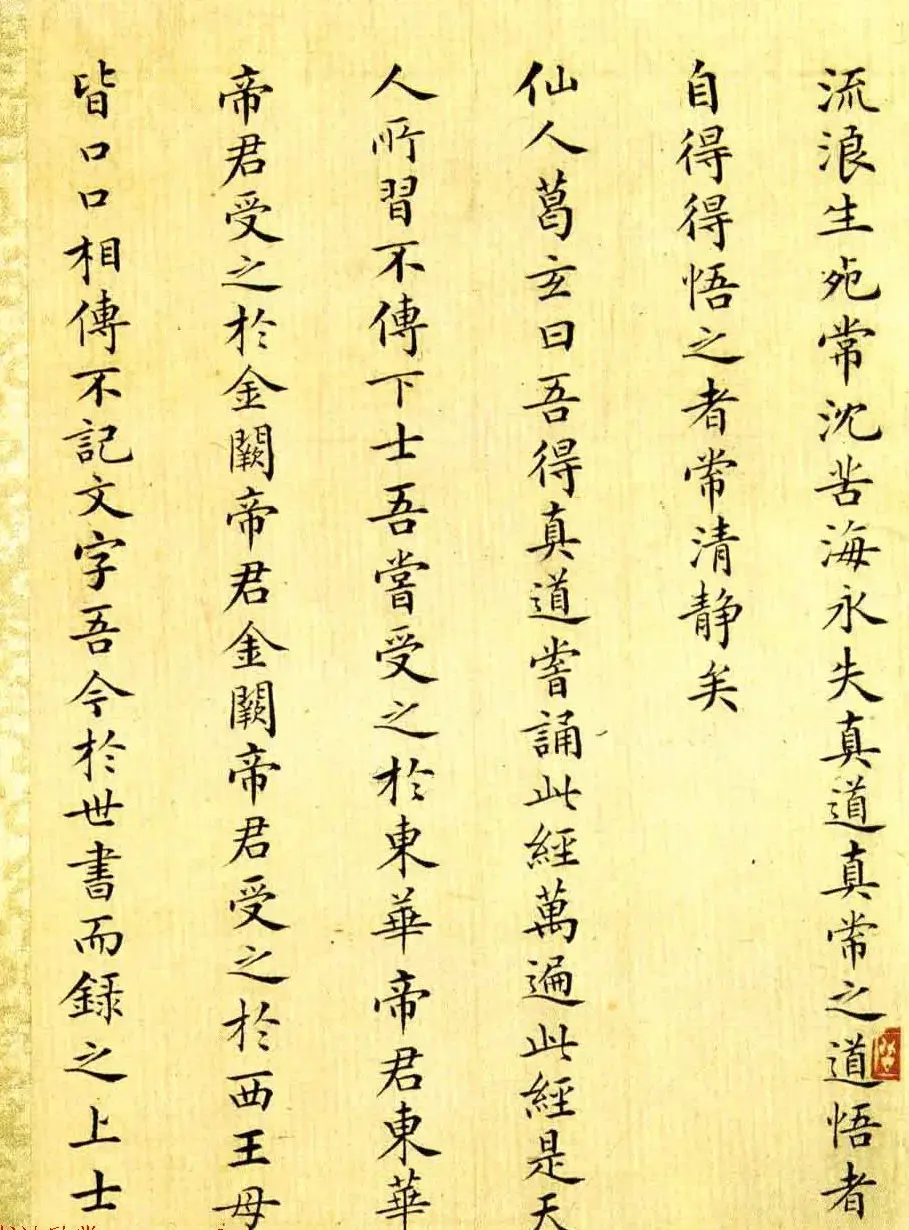 流浪生死常沈苦海永失真道真常之道悟者
自得得悟之者常清静矣
仙人葛玄曰吾得真道嘗誦此經萬遍此經是天
人所習不傳下士吾嘗受之於東華帝君東華
帝君受之於金闕帝君金闕帝君受之於西王母
皆口口相傳不記文字吾今於世書而錄之上士